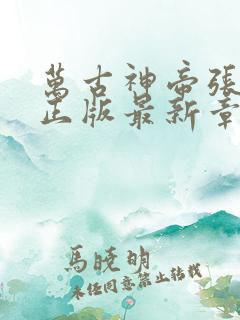 萬古神帝張
正版最新章
馬曉明
未经同意禁止转载